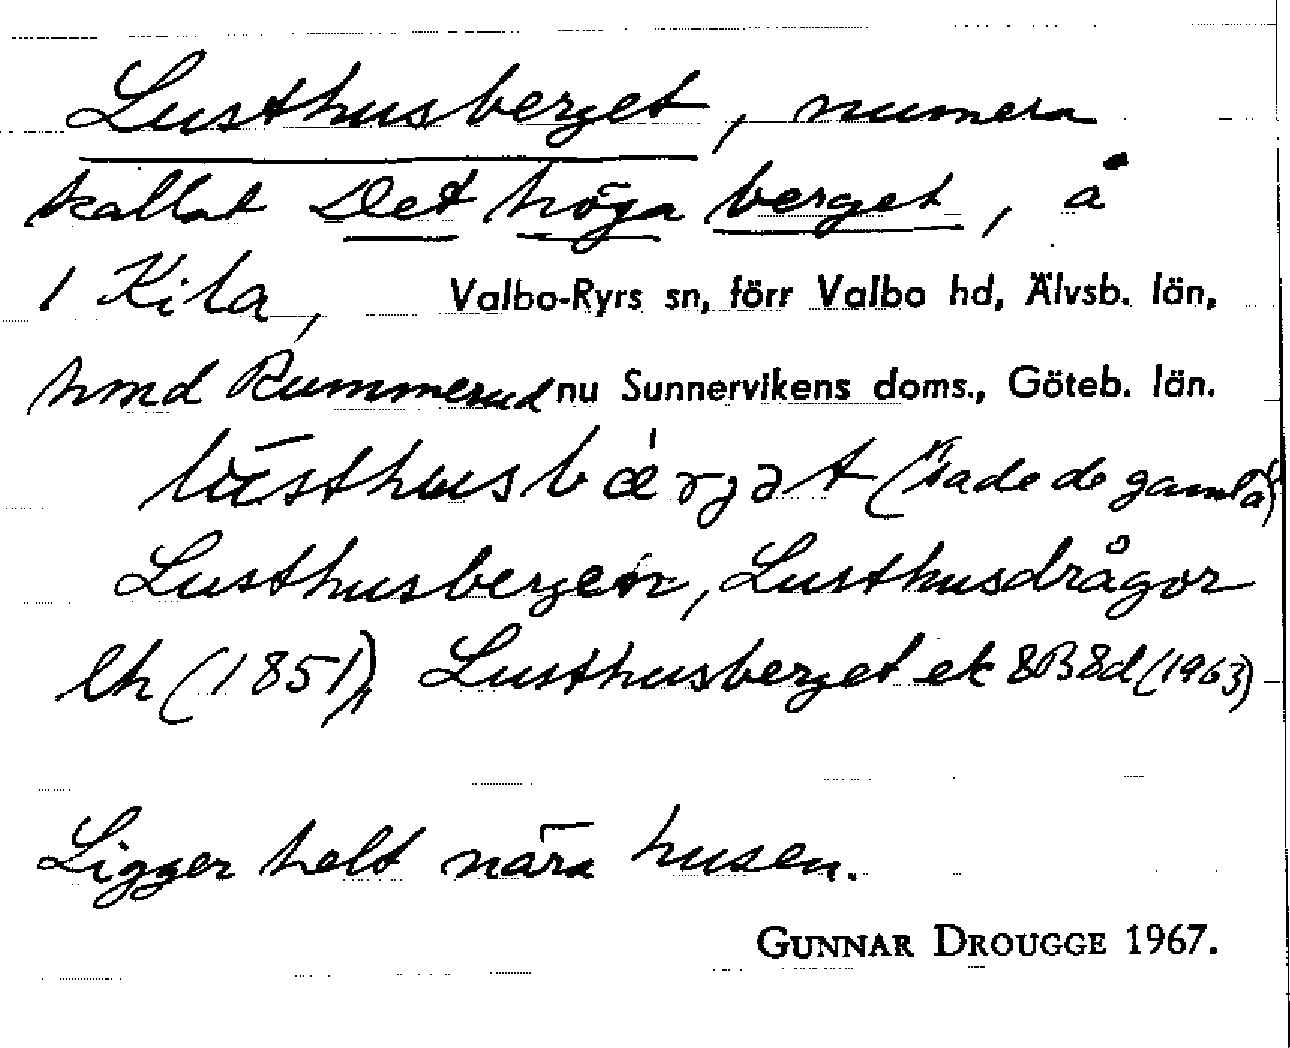 Lusthusberget, numera
kallat Det höga berget, å
1 Kila, Valbo-Ryrs sn, förr Valbo hd, Älvsb. län,
hmd Rummerud nu Sunnervikens doms., Göteb. län.
(sade de gamla)
Lusthusbergen, Lusthusdrågor
lh (1851), Lusthusberget ek 8B8d (1963)
Ligger helt nära husen.
GUNNAR DROUGGE 1967.